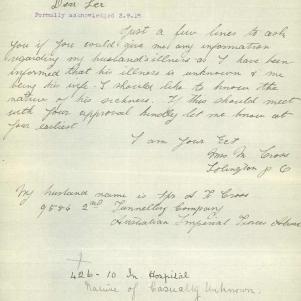 Dear Sir
Formally acknowledged 3.9.18
Just a few lines to ask
you if you could give me any information
regarding my husband's illness as I have been
informed that his illness is unknown & me
being his wife I should like to know the
nature of his sickness. If this should meet
with your approval kindly let me know at
your earliest
I am your
Mrs M. Cross
P.O
My husband name is Spr
9586 2nd Tunnelling Company
Australian Imperial Forces
426-10 In Hospital
Nature of Casualty Unknown.